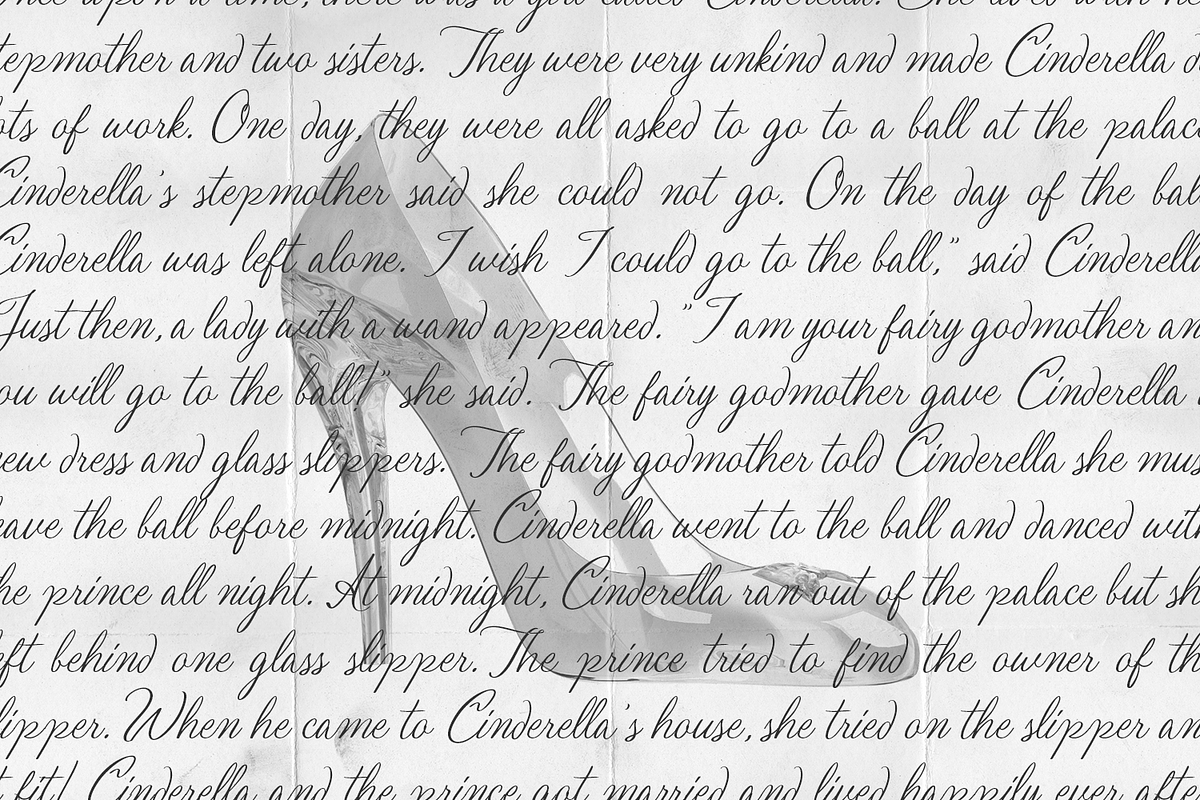 upon a time, there was a girl called Cinderella. She with
tepmother and two sisters. They were very unkind and made Cinderella d
ots of work. One day, they were all asked to go to a ball at the palac
Cinderella's stepmother said she could not go. On the day of the bal
Cinderella was left alone. I wish I could go to the ball,” said Cinderella
Just then, a lady with a wand appeared. ”I am your fairy godmother an
ou will go to the ball!” she said. The fairy godmother gave Cinderella
ew dress and glass slippers. The fairy godmother told Cinderella she mus
eave the ball before midnight. Cinderella went to the ball and danced wit
he prince all night. At midnight, Cinderella ran out of the palace but sh
eft behind one glass slipper. The prince tried to find the owner of th
lipper. When he came to Cinderella's house, she tried on the slipper an
t fit! Cinderella and the prince got married and lived happily ever afte